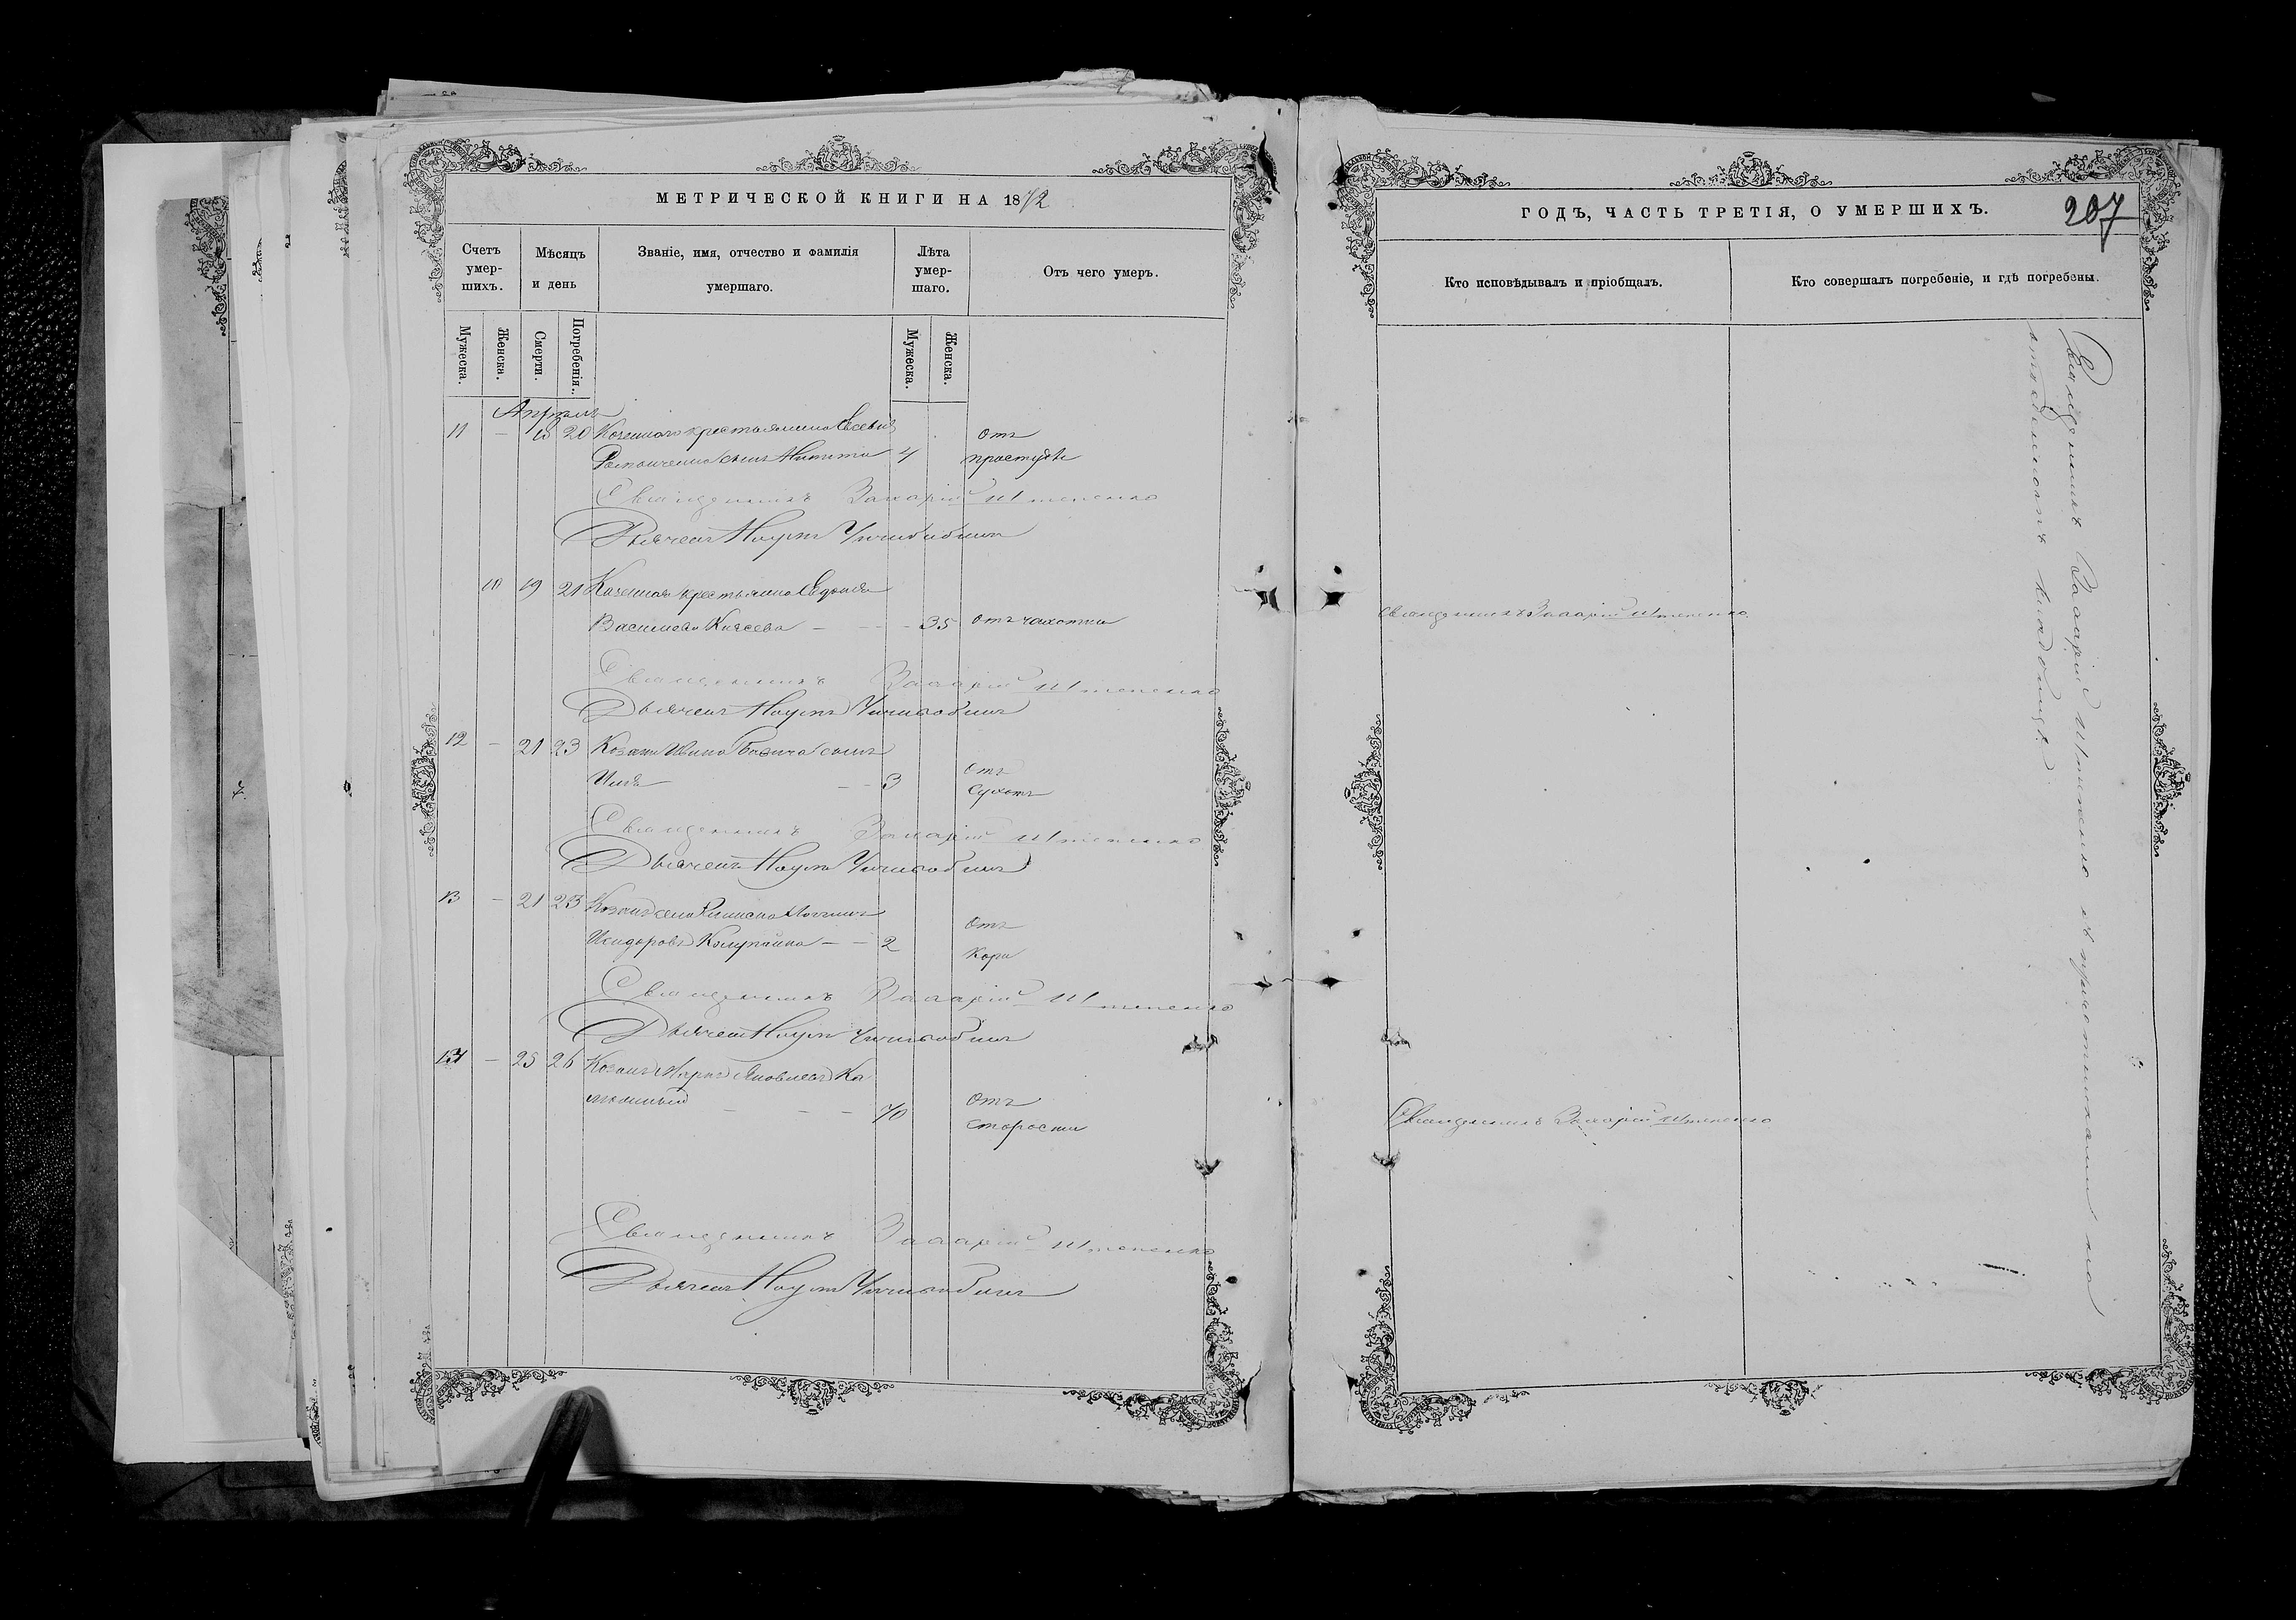 МЕТРИЧЕСКОЙ КНИГИ НА 1872
Счетъ умер- шихъ.
Мѣсяцъ и день
Званіе, имя, отчество и фамилія умершаго.
Лѣта умер- шаго.
Отъ чего умеръ.
Мужеска.
Женска.
Смерти.
Погребенія.
Мужеска.
Женска.
Апрѣль
11 – 18 20 Казеннаго крестьянина Евсевія
сынъ Никита 4
Отъ
простуды
Священникъ Захарій Штепенко
Дьячекъ Наумъ
10 19 21 Казенная крестьянка Евдокія
Василиева 35 отъ чахотки
Священникъ Захарій Штепенко
Дьячекъ Наумъ
12 – 21 23 Козака Ивана сынъ
Илія – – 3
Отъ
сухотъ
Священникъ Захарій Штепенко
Дьячекъ Наумъ
13 – 21 23 Козакъ
Исидоровъ – – 2
Отъ
кори
Священникъ Захарій Штепенко
Дьячекъ Наумъ
14 – 25 26 Козакъ Маркъ Яковлевъ Ка
– – – 70
Отъ
старости
Священникъ Захарій Штепенко
Дьячекъ Наумъ
ГОДЪ, ЧАСТЬ ТРЕТІЯ, О УМЕРШИХЪ.
207
Кто исповѣдывалъ и пріобщалъ.
Кто совершалъ погребеніе, и гдѣ погребены.
Священникъ Захарій Штепенко.
Священникъ Захарій Штепенко
Священникъ Захарій Штепенко съ причетниками на
кладбищѣ.